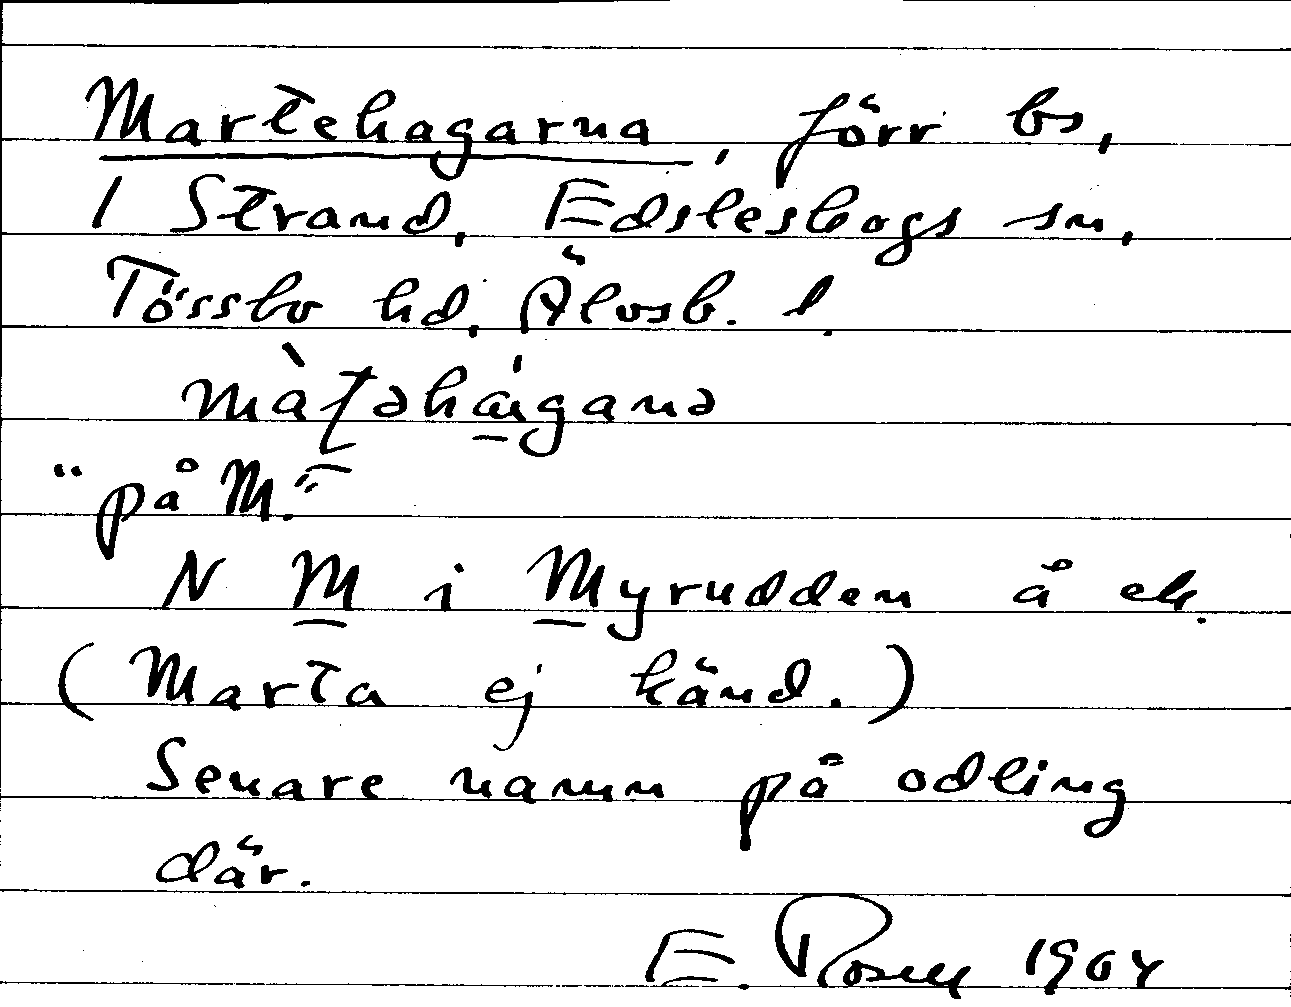 Martehagarna, förr bs,
1 Strand, Edslesbogs sn,
Tössbo hd, Älvsb. l.
màʈəhá̱ganə
"på M."
N M i Myrudden å ek.
(Marta ej känd.)
Senare namn på odling
där.
E. Rosell 1964